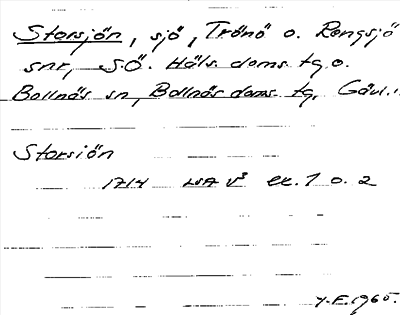 Storsjön, sjö, Trönö o. Rengsjö
snr, S.Ö. Häls. doms. tg o.
Bollnäs sn, Bollnäs doms. tg, Gävl.
Storsiön
1714 LSA V³ ek. 1 o. 2
Y.E. 1965.